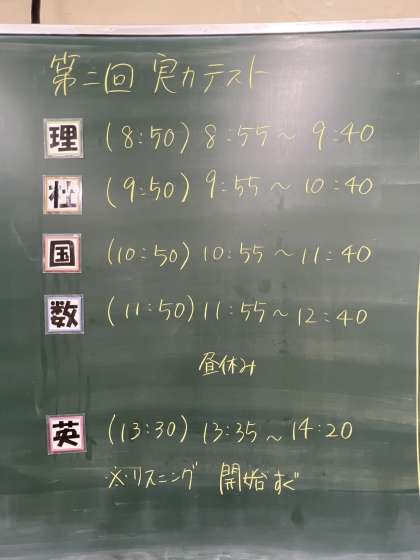 第二回 実力テスト
理 (8:50) 8:55～9:40
社 (9:50) 9:55～10:40
国 (10:50) 10:55～11:40
数 (11:50) 11:55～12:40
昼休み
英 (13:30) 13:35～14:20
※リスニング 開始すぐ